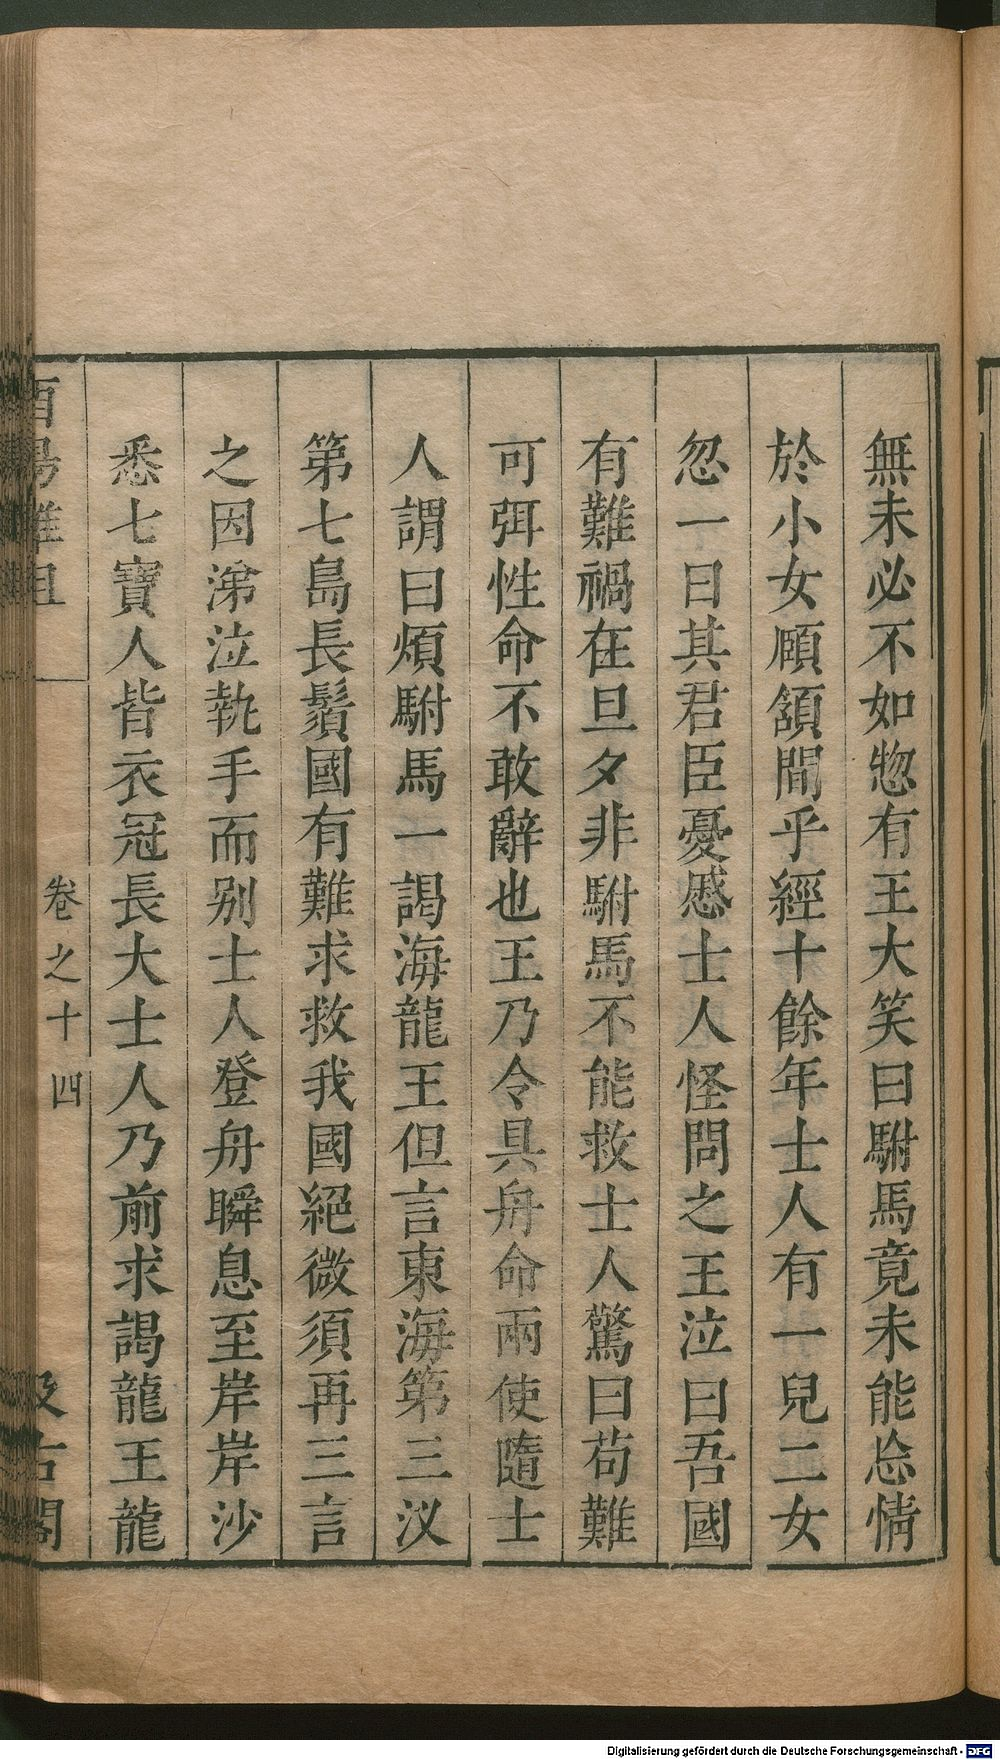 無未必不如惣有王大笑曰駙馬竟未能忘情
於小女頤頷間乎經十餘年士人有一兒二女
忽一日其君臣憂慼士人怪問之王泣曰吾國
有難禍在旦夕非駙馬不能救士人驚曰苟難
可弭性命不敢辭也王乃令具舟命兩使隨士
人謂曰煩駙馬一謁海龍王但言東海第三汊
第七島長鬚國有難求救我國絕微須再三言
之因涕泣執手而别士人登舟瞬息至岸岸沙
悉七寶人皆衣冠長大士人乃前求謁龍王龍
酉陽雜俎
卷之十四
汲古閣
Digitalisierung gefördert durch die Deutsche Forschungsgemeinschaft - DFG